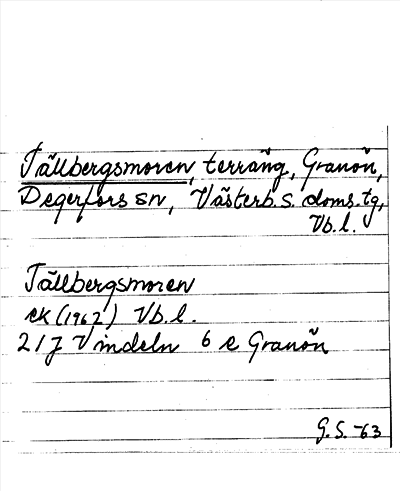 Tällbergsmoren, terräng, Granön,
Degerfors sn, Västerb. s. doms. tg,
Vb. l.
Tällbergsmoren
ek (1962) Vb. l.
21J Vindeln 6 e Granön
G. S. -63